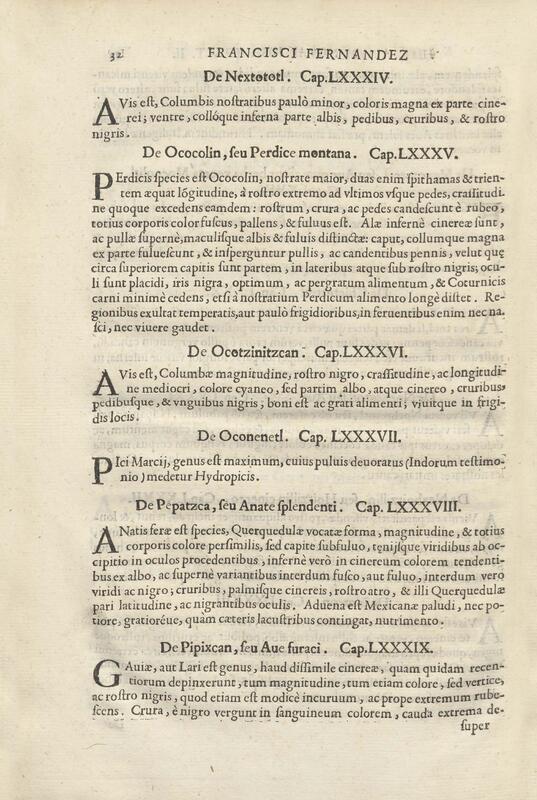 32 FRANCISCI FERNANDEZ
De Nextototl. Cap.LXXXIV.
AVis eſt, Columbis noſtratibus paulò minor, coloris magna ex parte cine-
rei; ventre, collóque inferna parte albis, pedibus, cruribus, & roſtro
nigris.
De Ococolin, ſeu Perdice montana. Cap.LXXXV.
PErdicis ſpecies eſt Ococolin, noſtrate maior, duas enim ſpithamas & trien-
tem æquat lõgitudine, à roſtro extremo ad vltimos vſque pedes, craſſitudi-
ne quoque excedens eamdem: roſtrum, crura, ac pedes candeſcunt è rubeo,
totius corporis color fuſcus, pallens, & fuluus eſt. Alæ infernè cinereæ ſunt,
ac pullæ ſupernè, maculiſque albis & fuluis diſtinctæ: caput, collumque magna
ex parte fulueſcunt, & inſperguntur pullis, ac candentibus pennis, velut quę
circa ſuperiorem capitis ſunt partem, in lateribus atque ſub roſtro nigris; ocu-
li ſunt placidi, iris nigra, optimum, ac pergratum alimentum, & Coturnicis
carni minimè cedens, etſi à noſtratium Perdicum alimento longè diſtet. Re-
gionibus exultat temperatis, aut paulò frigidioribus, in feruentibus enim nec na-
ſci, nec viuere gaudet.
De Ocotzinitzcan. Cap.LXXXVI.
AVis eſt, Columbæ magnitudine, roſtro nigro, craſſitudine, ac longitudi-
ne mediocri, colore cyaneo, ſed partim albo, atque cinereo, cruribus,
pedibuſque, & vnguibus nigris; boni eſt ac grati alimenti; vjuitque in frigi-
dis locis.
De Oconenetl. Cap. LXXXVII.
PIci Marcij, genus eſt maximum, cuius puluis deuoratus (Indorum teſtimo-
nio) medetur Hydropicis.
De Pepatzca, ſeu Anate ſplendenti. Cap.LXXXVIII.
ANatis feræ eſt ſpecies, Querquedulæ vocatæ forma, magnitudine, & totius
corporis colore perſimilis, ſed capite ſubfuluo, tęnijſque viridibus ab oc-
cipitio in oculos procedentibus, infernè verò in cinereum colorem tendenti-
bus ex albo, ac ſupernè variantibus interdum fuſco, aut fuluo, interdum vero
viridi ac nigro; cruribus, palmiſque cinereis, roſtro atro, & illi Querquedulæ
pari latitudine, ac nigrantibus oculis. Aduena eſt Mexicanæ paludi, nec po-
tiore, gratioréue, quam cæteris lacuſtribus contingat, nutrimento.
De Pipixcan, ſeu Aue furaci. Cap.LXXXIX.
GAuiæ, aut Lari eſt genus, haud diſſimile cinereæ, quam quidam recen-
tiorum depinxerunt, tum magnitudine, tum etiam colore, ſed vertice,
ac roſtro nigris, quod etiam eſt modicè incuruum, ac prope extremum rube-
ſcens. Crura, è nigro vergunt in ſanguineum colorem, cauda extrema de-
ſuper